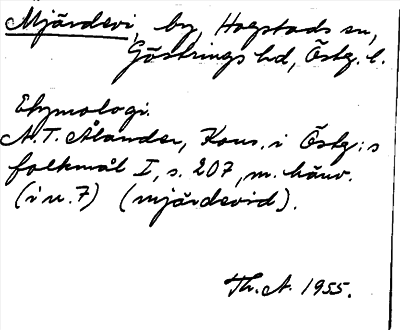 Mjärdevi, by, Hogstads sn,
Göstrings hd, Östg. l.
Etymologi.
A. T. Ålander, Kons. i Östg:s
folkmål I, s. 207, m. hänv.
(i n. 7) (mjärdevid).
Th. A. 1955.